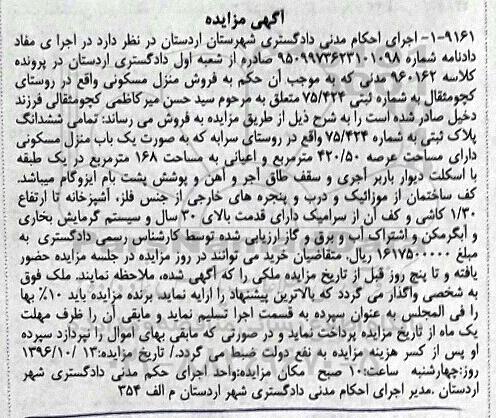 آگهی مزایده
۹۱۶۱-۱- اجرای احکام مدنی دادگستری شهرستان اردستان در نظر دارد در اجرا ی مفاد
دادنامه شماره ۹۵۰۹۹۷۳۶۲۳۱۰۱۰۹۸ صادره از شعبه اول دادگستری اردستان در پرونده
کلاسه ۹۶۰۱۶۲ مدنی که به موجب آن حکم به فروش منزل مسکونی واقع در روستای
کچومثقال به شماره ثبتی ۷۵/۴۲۴ متعلق به مرحوم سید حسن میرکاظمی کچومثقالی فرزند
دخیل صادر شده است را به شرح ذیل از طریق مزایده به فروش می رساند: تمامی ششدانگ
پلاک ثبتی به شماره ۷۵/۴۲۴ واقع در روستای سرابه که به صورت یک باب منزل مسکونی
دارای مساحت عرصه ۴۲۰/۵۰ مترمربع و اعیانی به مساحت ۱۶۸ مترمربع در یک طبقه
با اسکلت دیوار باربر آجری و سقف طاق آجر و آهن و پوشش پشت بام ایزوگام میباشد.
کف ساختمان از موزائیک و درب و پنجره های خارجی از جنس فلز، آشپزخانه تا ارتفاع
۱/۳۰ کاشی و کف آن از سرامیک دارای قدمت بالای ۳۰ سال و سیستم گرمایش بخاری
و آبگرمکن و اشتراک آب و برق و گاز ارزیابی شده توسط کارشناس رسمی دادگستری به
مبلغ ۱۶۱۷۵۰۰۰۰۰ ریال. متقاضیان خرید می توانند در روز مزایده در جلسه مزایده حضور
یافته و تا پنج روز قبل از تاریخ مزایده ملکی را که آگهی شده، ملاحظه نمایند. ملک فوق
به شخصی واگذار می گردد که بالاترین پیشنهاد را ارایه نماید. برنده مزایده باید ۱۰٪ بها
را فی المجلس به عنوان سپرده به قسمت اجرا تسلیم نماید و مابقی آن را ظرف مهلت
یک ماه از تاریخ مزایده پرداخت نماید و در صورتی که مابقی بهای اموال را نپردازد سپرده
او پس از کسر هزینه مزایده به نفع دولت ضبط می گردد./ تاریخ مزایده:۱۳ /۱۳۹۶/۱۰
روز:چهارشنبه ساعت:۱۰ صبح مکان مزایده:واحد اجرای حکم مدنی دادگستری شهر
اردستان .مدیر اجرای احکام مدنی دادگستری شهر اردستان م الف ۳۵۴